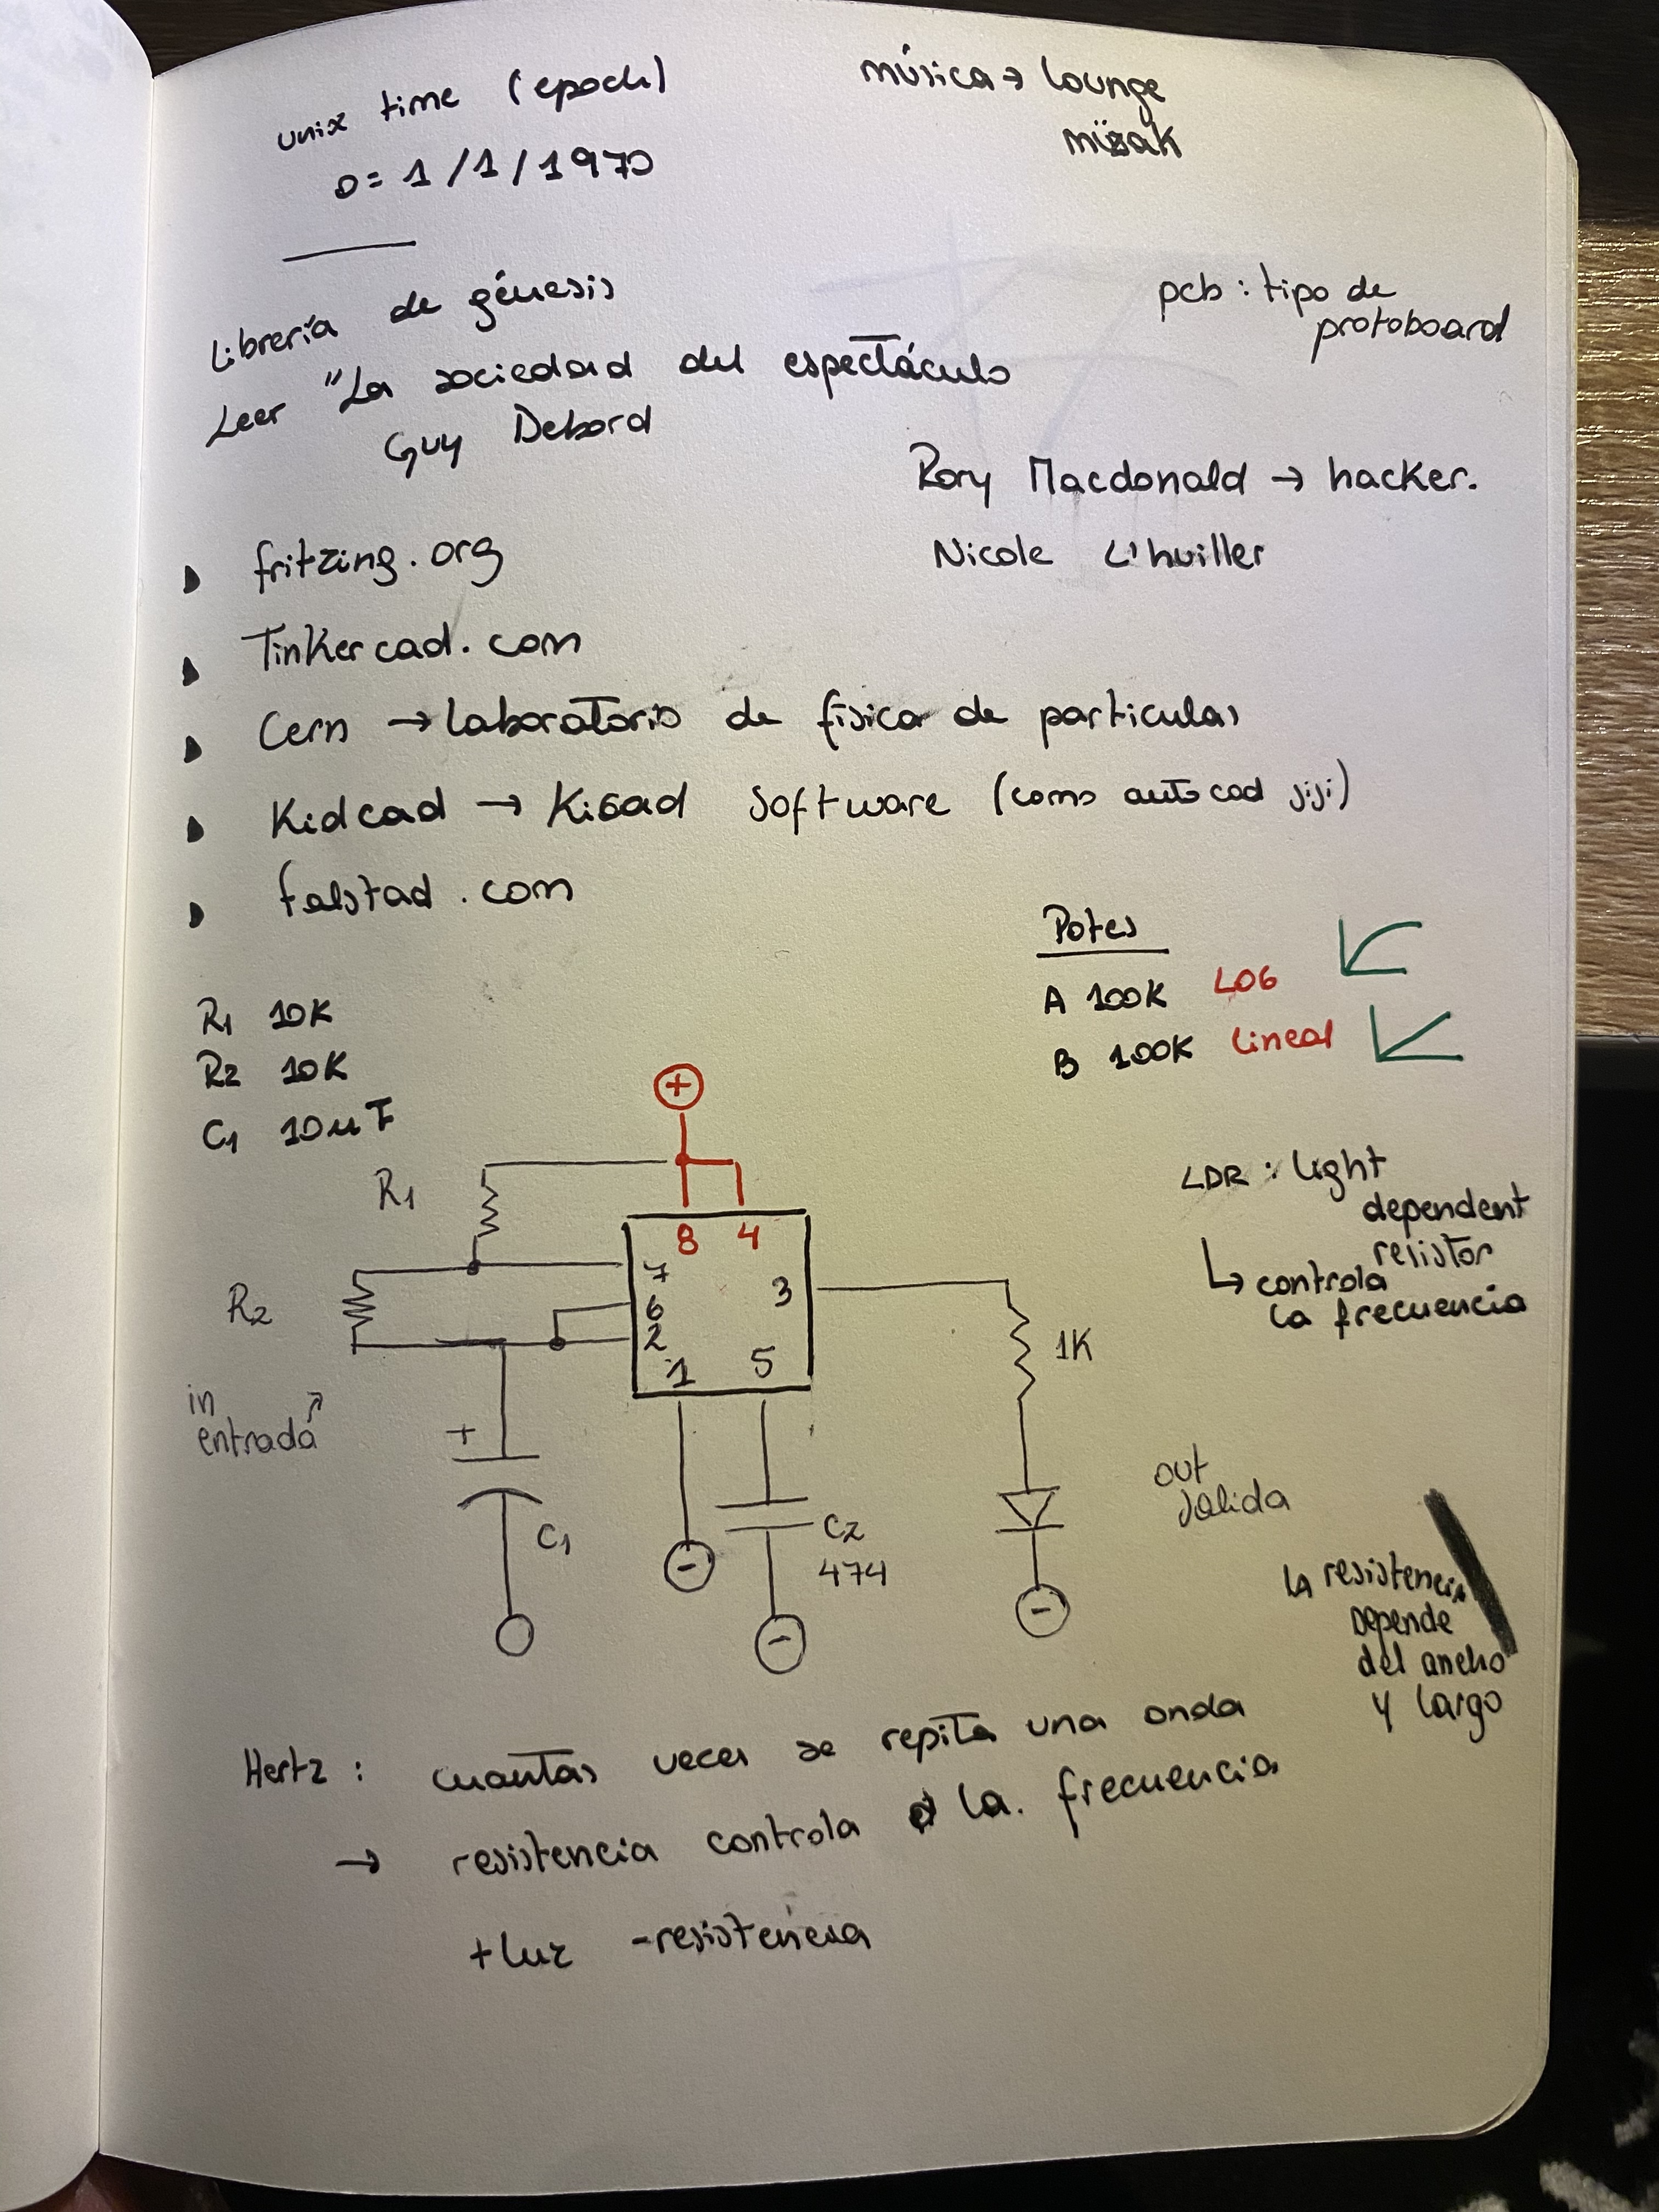 unix time (epoch)
0 = 1/1/1970
música → lounge
Librería de génesis
Leer "La sociedad del espectáculo
Guy Debord
pcb : tipo de
protoboard
Rory Macdonald → hacker.
Nicole L'huiller
fritzing.org
Tinkercad.com
Cern → laboratorio de física de particulas
Kidcad → Kicad software (como autocad jiji)
falstad.com
Potes
A 100K LOG
B 100K Lineal
R1 10K
R2 10K
C1 10uF
+
R1
8 4
7
6
2
3
1 5
R2
1K
in
entrada
+
C1
-
C2
474
-
-
out
salida
LDR : light
dependent
resistor
↳ controla
la frecuencia
LA resistencia
Depende
del ancho
y largo
Hertz : cuantas veces se repita una onda
→ resistencia controla la. frecuencia
+luz -resistencia